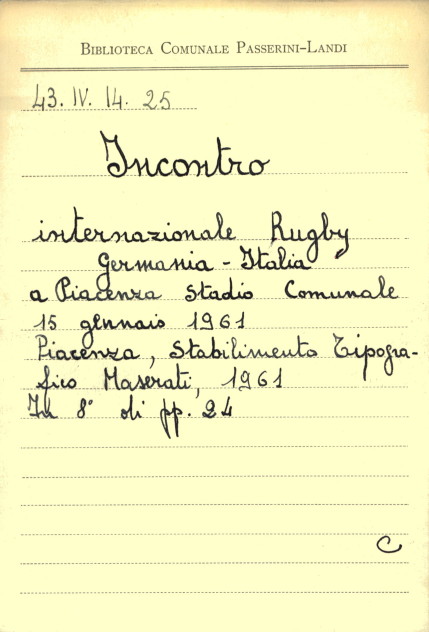 BIBLIOTECA COMUNALE PASSERINI-LANDI
43. IV. 14. 25
Incontro
internazionale Rugby
Germania - Italia
a Piacenza Stadio Comunale
15 gennaio 1961
Piacenza, Stabilimento Tipogra-
fico Maserati, 1961
In 8° di pp. 24
C